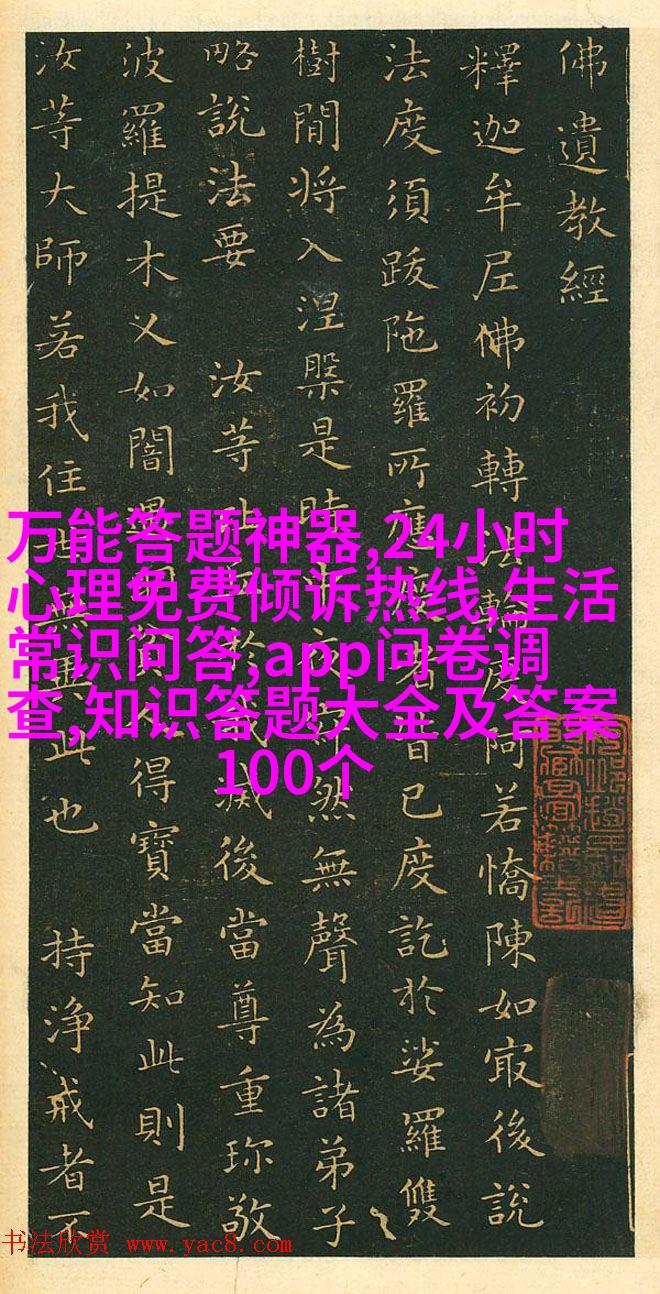 佛遺教經
釋迦牟尼佛初轉法輪度阿若憍陳如㝡後說
法度須跋陁羅所應度者皆已度訖於娑羅雙
樹閒將入涅槃是時中夜寂然無聲為諸弟子
略說法要 汝等比丘於我滅後當尊重珍敬
波羅提木乂如闇遇明貧人得寶當知此則是
汝等大師若我住世無異此也 持淨戒者不
万能答题神器,24小时
心理免费倾诉热线,生活
常识问答,app问卷调
查,知识答题大全及答案
100个
书法欣赏 www.yac8.com